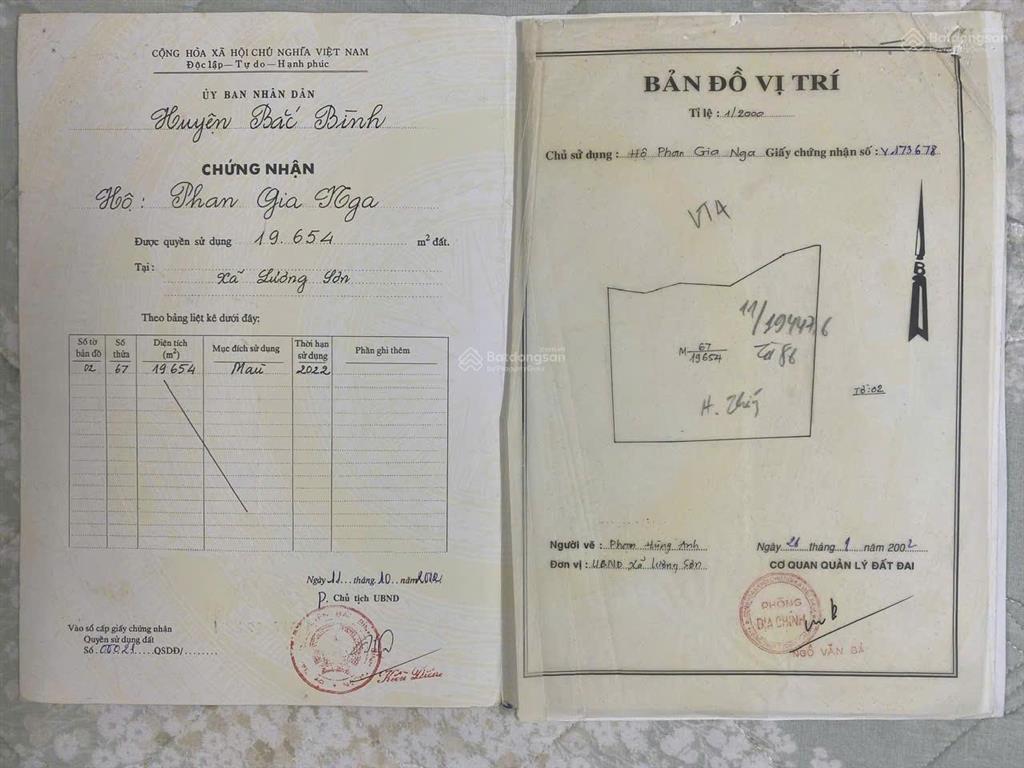 CỘNG HÒA XÃ HỘI CHỦ NGHĨA VIỆT NAM
Độc lập—Tự do—Hạnh phúc
ỦY BAN NHÂN DÂN
Huyện Bắc Bình
CHỨNG NHẬN
Hộ: Phan Gia Nga
Được quyền sử dụng 19.654 m² đất.
Tại:
Xã Lương Sơn
Theo bảng liệt kê dưới đây:
Số tờ bản đồ Số thửa Diện tích (m²) Mục đích sử dụng Thời hạn sử dụng Phần ghi thêm
02 67 19654 Màu 2022
Ngày 11 tháng 10 năm 2002
P. Chủ tịch UBND
Vào sổ cấp giấy chứng nhận
Quyền sử dụng đất
Số 00021 QSDĐ/
BẢN ĐỒ VỊ TRÍ
Tỉ lệ : 1/2000
Chủ sử dụng : Hộ Phan Gia Nga Giấy chứng nhận số : V173678
B
11/19447,6
M 67/19654
H. Thủy
Tờ: 02
Người vẽ : Phạm Hùng Anh
Đơn vị : UBND xã Lương Sơn
Ngày 21 tháng 9 năm 2002
CƠ QUAN QUẢN LÝ ĐẤT ĐAI
PHÒNG
ĐỊA CHÍNH
NGÔ VĂN BÁ
Batdongsan
by PropertyGuru
Batdongsan